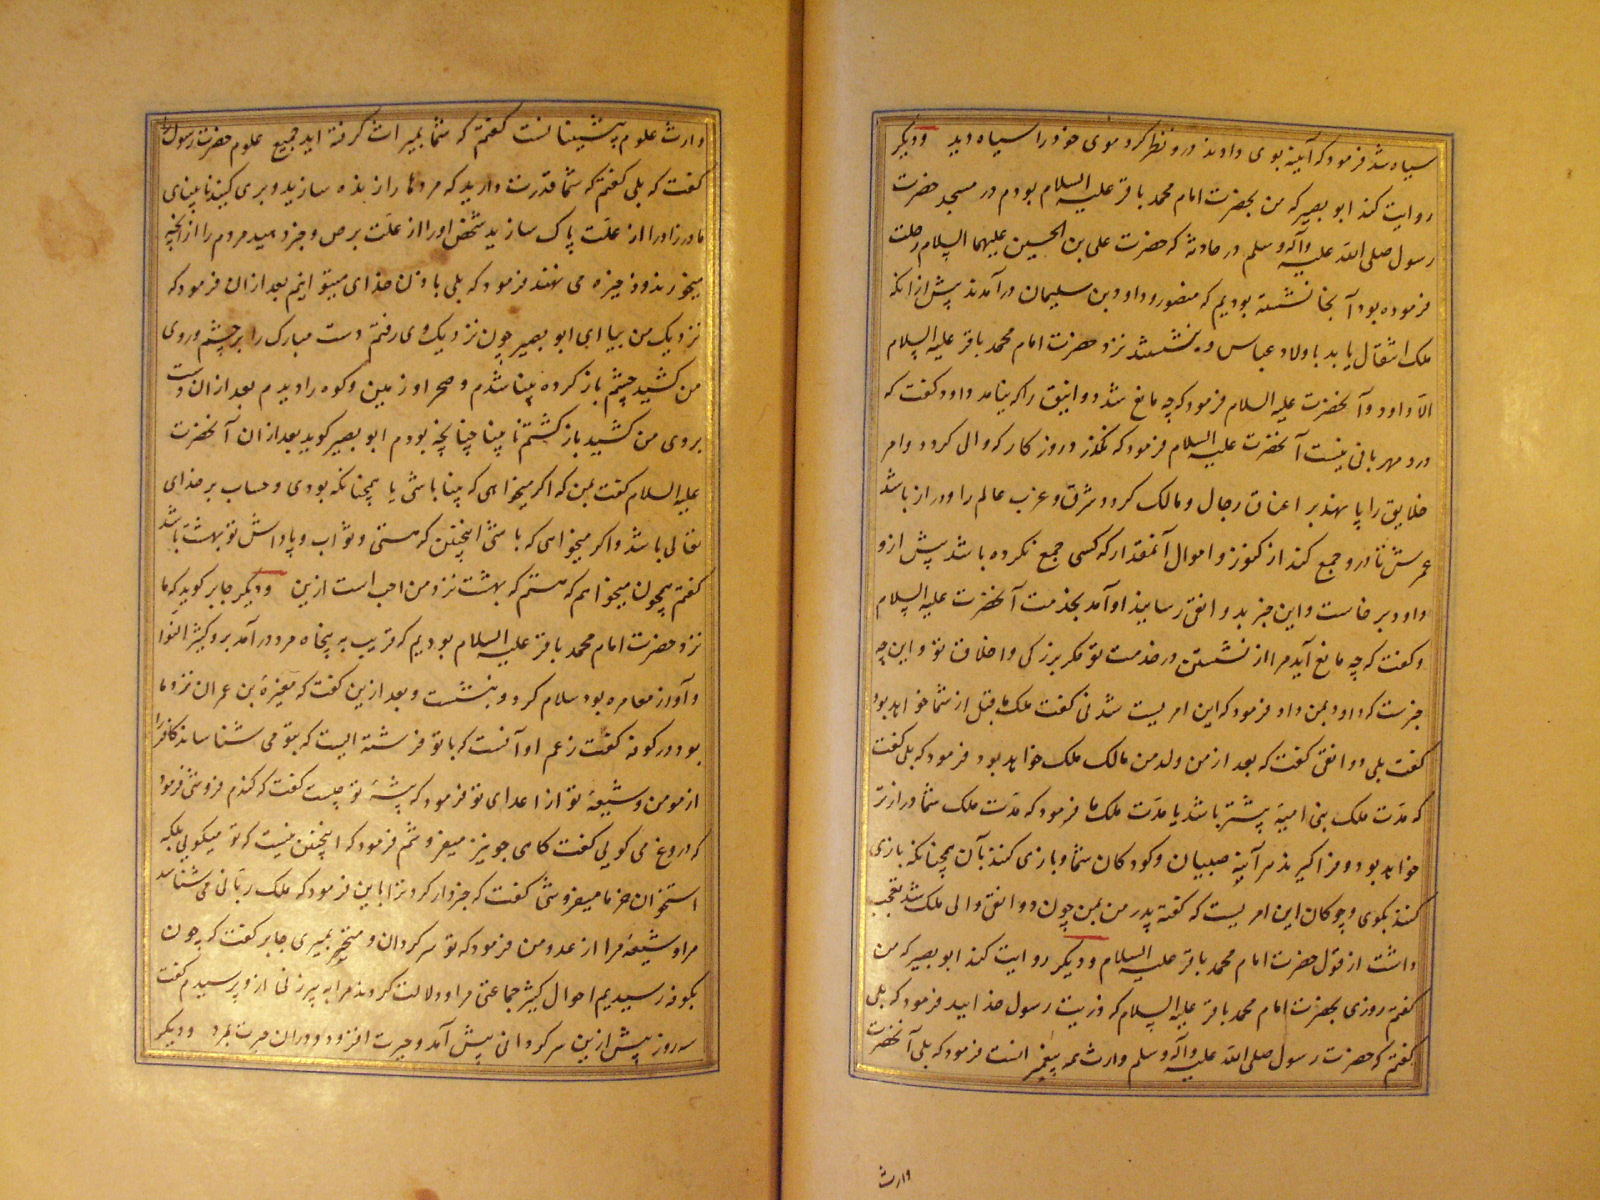 سیاه شد فرمود که آینه بوی دادند درو نظر کرد موی خود را سیاه دید و دیگر
روایت کند ابو بصیر که من بحضرت امام محمد باقر علیه السلام بودم در مسجد حضرت
رسول صلی الله علیه وآله وسلم در حادثه که حضرت علی بن الحسین علیهما السلام رحلت
فرموده بود آنجا نشسته بودیم که منصور و داود بن سلیمان در آمدند پیش از آنکه
ملک انتقال یابد باولاد عباس و ننشستند نزد حضرت امام محمد باقر علیه السلام
الا داود و آنحضرت علیه السلام فرمود که چه مانع شد دوانیق را که نیامد داود گفت که
درو مهربانی نیست آنحضرت علیه السلام فرمود که نگذرد روزگار که والی گردد و امر
خلایق را پا بهند بر اعناق رجال و مالک گردد شرق و غرب عالم را و دراز باشد
عمرش تا درو جمع کند از کنوز و اموال آنمقدار که کسی جمع نکرده باشد پیش ازو
داود برخاست و این خبر بدوانقی رسانید او آمد بخدمت آنحضرت علیه السلام
و گفت که چه مانع آید مرا از نشستن در خدمت تو مگر بزرگی و اخلاق تو و این چه
خبرست که داود بمن داد فرمود که این امریست شدنی گفت ملک ما قبل از شما خواهد بود
گفت بلی دوانقی گفت که بعد از من ولد من مالک ملک خواهد بود فرمود که بلی گفت
که مدت ملک بنی امیه بیشتر باشد یا مدت ملک ما فرمود که مدت ملک شما درازتر
خواهد بود و فراگیرند هر آینه صبیان و کودکان شما و بازی کنند بآن همچنانکه بازی
کنند بگوی و چوگان این امریست که گفته پدر من بمن چون دوانقی والی ملک شد تعجب
داشت از قول حضرت امام محمد باقر علیه السلام و دیگر روایت کند ابو بصیر که من
گفتم روزی بحضرت امام محمد باقر علیه السلام که ذریت رسول خدایید فرمود که بلی
گفتم که حضرت رسول صلی الله علیه وآله وسلم وارث همه پیغمبرانست فرمود که بلی آنحضرت
وارث
وارث علوم پیشینانست گفتم که شما بمیراث گرفته اید جمیع علوم حضرت رسول را
گفت که بلی گفتم که شما قدرت دارید که مردها را زنده سازید و بری کنید نابینای
مادرزاد را از علت پاک سازید شخص اورا از علت برص و خبر دهید مردم را از آنچه
میخورند و ذخیره می نهند فرمود که بلی باذن خدای میتوانیم بعد از آن فرمود که
نزدیک من بیا ای ابو بصیر چون نزدیک وی رفتم دست مبارک را بر چشم و روی
من کشید چشم باز کرده بینا شدم و صحرا و زمین و کوه را دیدم بعد از ان دست
بروی من کشید باز گشتم نابینا چنانچه بودم ابو بصیر گوید بعد از ان آنحضرت
علیه السلام گفت بمن که اگر میخواهی که بینا باشی یا همچنانکه بودی و حساب بر خدای
تعالی باشد و اگر میخواهی که باشی اینچنین که هستی و ثواب و پاداش تو بهشت باشد
گفتم همچون میخواهم که هستم که بهشت نزد من احب است ازین و دیگر جابر گوید که ما
نزد حضرت امام محمد باقر علیه السلام بودیم که قریب به پنجاه مرد در آمد برو کثیر النوا
و آورد معامره بود سلام کرد و بنشست و بعد ازین گفت که مغیرهٔ بن عمران نزد ما
بود در کوفه گفت زعم او آنست که با تو فرشته ایست که بتو می شناساند کافر را
از مومن و شیعهٔ تو از اعدای تو فرمود که پیشهٔ تو چیست گفت که گندم فروشی فرمود
که دروغ می گویی گفت گاهی جو نیز میفروشم فرمود که اینچنین نیست که تو میگویی بلکه
استخوان خرما میفروشی گفت که خبردار کرد ترا باین فرمود که ملک ربانی می شناسد
مرا و شیعهٔ مرا از عدو من فرمود که تو سرگردان و متحیر بمیری جابر گفت که چون
بکوفه رسیدیم احوال کثیر جماعتی مرا و دلالت کردند مرا به پیرزنی ازو پرسیدم گفت
سه روز پیش ازین سرگردانی پیش آمد و حیرت افزود و دران حیرت بمرد و دیگر